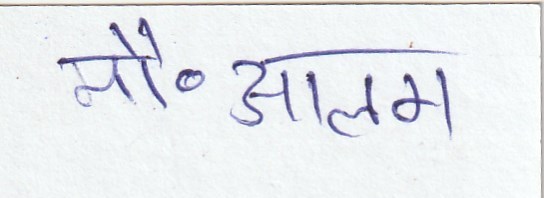 मौ॰ आलम